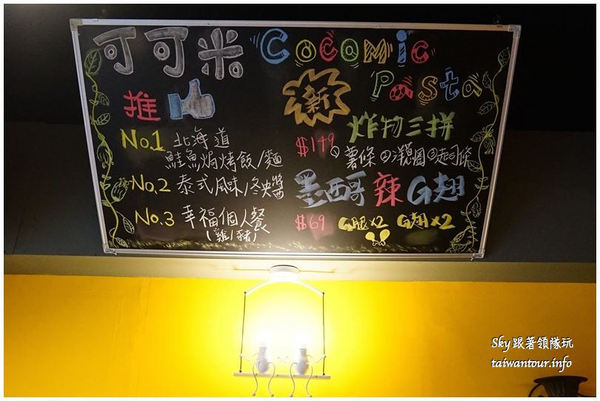 可可米 Cocomic
Pasta
推
No.1 北海道
鮭魚焗烤飯/麵
No.2 泰式風味/冬炊醬
No.3 幸福個人餐
(雞/豬)
新
炸物三拼
$149 薯條 洋蔥圈 起司條
墨西哥辣G翅
$69 G腿x2 G翅x2
Sky跟著領隊玩
taiwantour.info